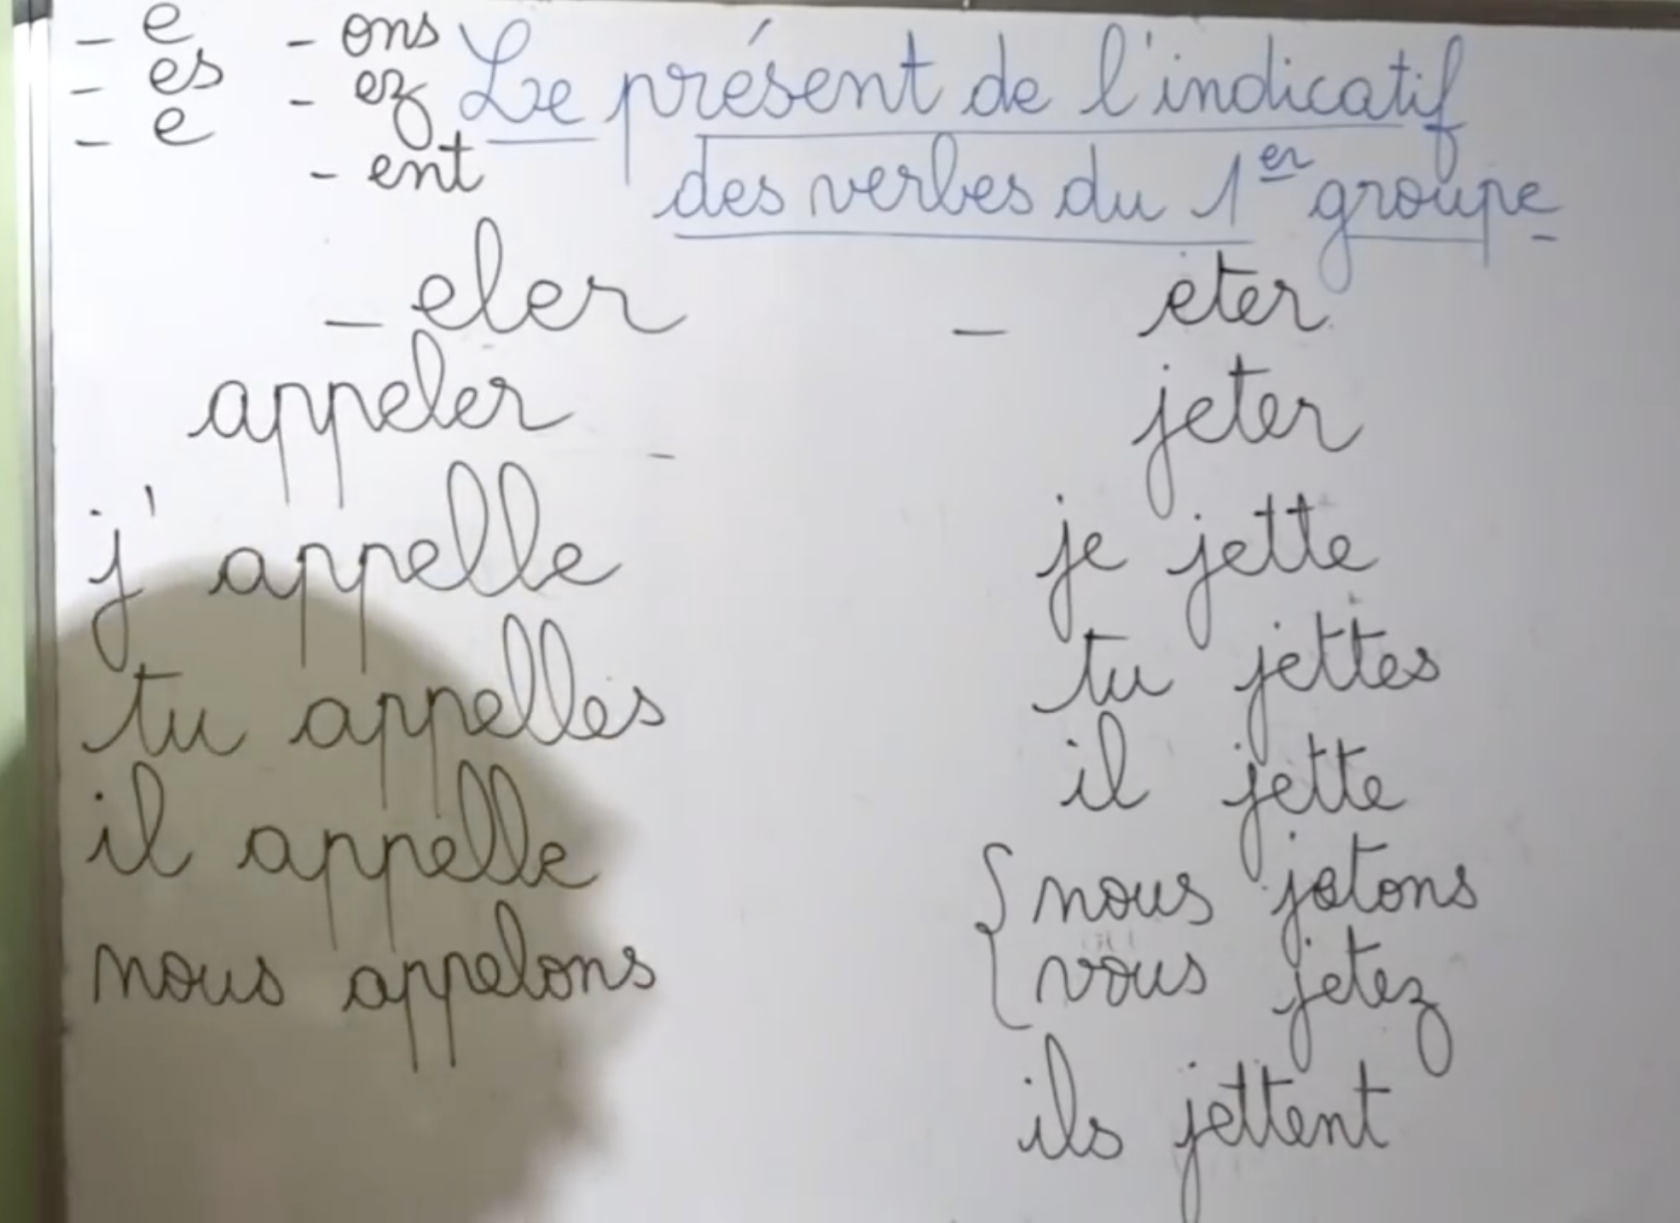 - e - ons
- es - ez
- e - ent
Le présent de l'indicatif
des verbes du 1er groupe
- eler
appeler
j' appelle
tu appelles
il appelle
nous appelons
- eter
jeter
je jette
tu jettes
il jette
nous jetons
vous jetez
ils jettent